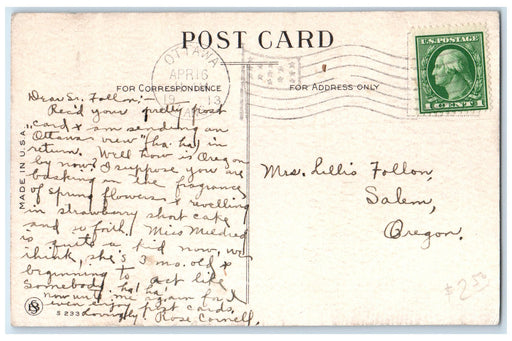 POST CARD
OTTAWA
APR 16
13
FOR CORRESPONDENCE
FOR ADDRESS ONLY
U.S. POSTAGE
1 CENT 1
MADE IN U.S.A.
Dear Sr. Follon:-
Rec'd your pretty post
card & am sending an
Ottawa view "(ha ha) in
return. Well how is Oregon
by now? I suppose you are
basking in the fragrance
of spring flowers & revelling
in strawberry short cake
and so forth. Miss Mildred
is quite a kid now, we
think, she's 3 mo. old &
beginning to act like
somebody ha! ha!
now write me again for I
even enjoy post cards.
Lovingly. Rose Cornell.
Mrs. Lillis Follon,
Salem,
Oregon.
$2.50
S 233